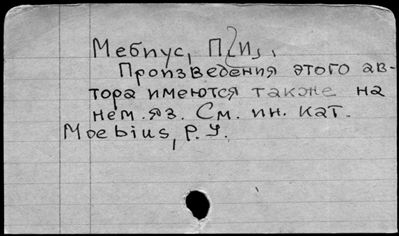 Мебиус, П.И.
Произведения этого ав-
тора имеются также на
нем. яз. См. ин. кат.
Moebius, P. J.